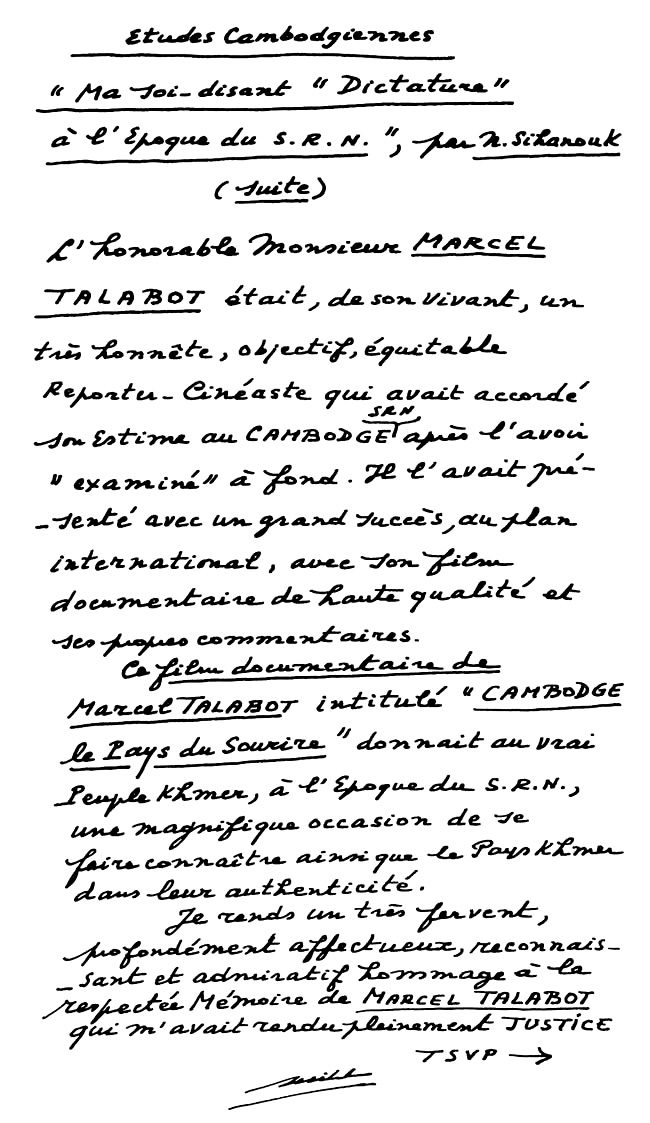 Etudes Cambodgiennes
" Ma soi-disant " Dictature "
à l'Epoque du S.R.N. ", par N. Sihanouk
(suite)
L'honorable Monsieur MARCEL
TALABOT était, de son vivant, un
très honnête, objectif, équitable
Reporter-Cinéaste qui avait accordé
SRN
son Estime au CAMBODGE après l'avoir
" examiné " à fond. Il l'avait pré-
-senté avec un grand succès, au plan
international, avec son film
documentaire de haute qualité et
ses propres commentaires.
Ce film documentaire de
Marcel TALABOT intitulé " CAMBODGE
le Pays du Sourire " donnait au vrai
Peuple Khmer, à l'Epoque du S.R.N.,
une magnifique occasion de se
faire connaître ainsi que le Pays Khmer
dans leur authenticité.
Je rends un très fervent,
profondément affectueux, reconnais-
-sant et admiratif hommage à la
respectée Mémoire de MARCEL TALABOT
qui m'avait rendu pleinement JUSTICE
TSVP →